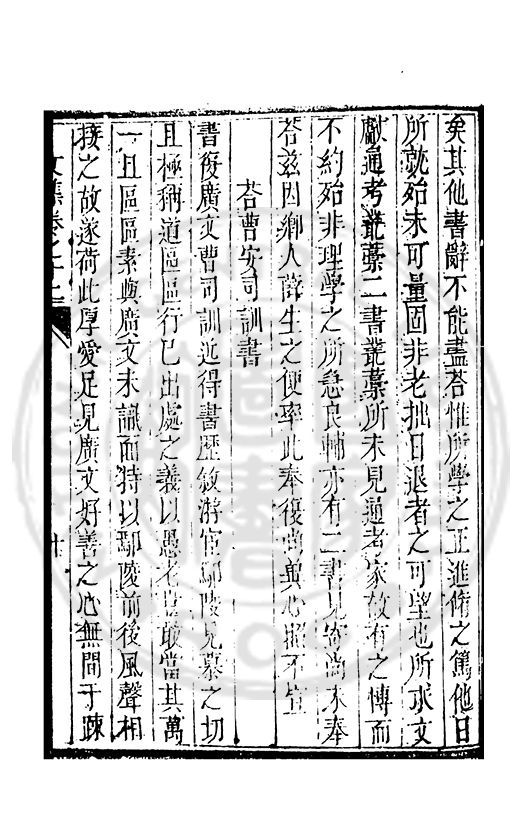 矣其他書辭不能盡荅惟所學之正進脩之篤他日
所就殆未可量固非老拙日退者之可望也所求文
獻通考叢藁二書叢藁所未見通考家故有之博而
不約殆非理學之所急良輔亦有二書見寄尚未奉
荅茲因鄉人薛生之便率此奉復尚冀心照不宣
荅曹安司訓書
書復廣文曹司訓近得書歷敘游宦鄢陵見慕之切
且極稱道區區行已出處之義以愚老豈敢當其萬
一且區區素與廣文未識而特以鄢陵前後風聲相
接之故遂荷此厚愛足見廣文好善之心無間于踈
文集卷之十二
十